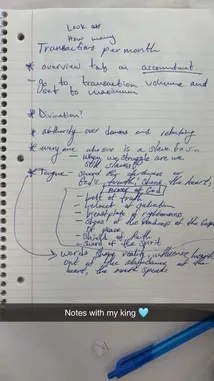 Look at
How many
Transactions per month
* overview tab on accountant
- Go to transaction volume and
set to maximum
* Divination?
* authority over demons and rebuking
* everyone whose is a slave for sin
- when we struggle are we
still slaves?
* Tongue - Sword of
God's truth, the heart,
power of God
- belt of truth
- helmet of salvation
- breastplate of righteousness
- of the readiness of the Gospel
of peace
- shield of faith
- sword of the spirit
words bring reality,
out of the abundance of the
heart, the mouth speaks
Notes with my king 🩵